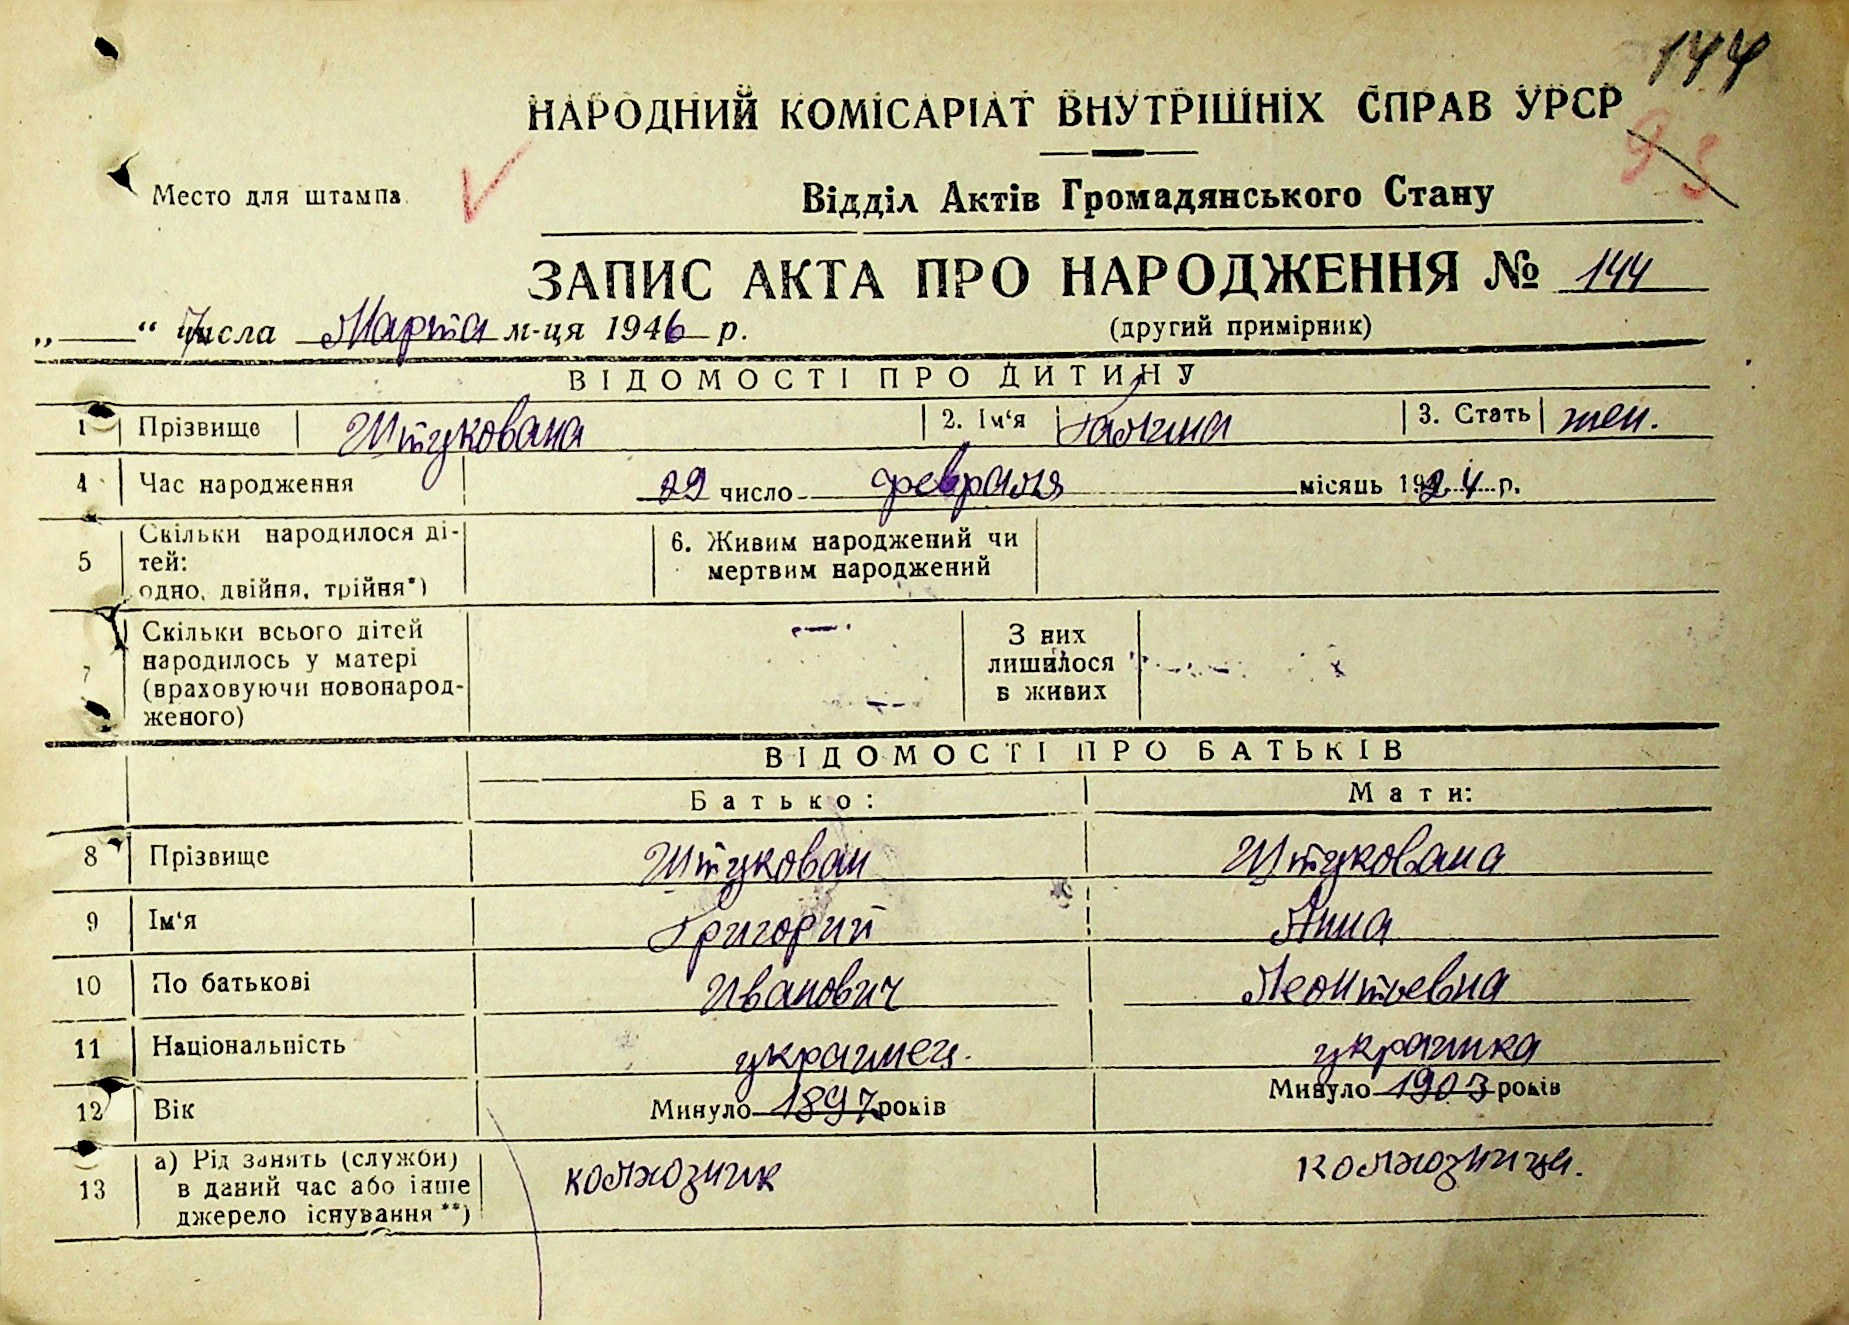 144
НАРОДНИЙ КОМІСАРІАТ ВНУТРІШНІХ СПРАВ УРСР
93
Место для штампа
Відділ Актів Громадянського Стану
ЗАПИС АКТА ПРО НАРОДЖЕННЯ № 144
„ “ 7 числа Марта м-ця 1946 р. (другий примірник)
ВІДОМОСТІ ПРО ДИТИНУ
1 Прізвище Штукована 2. Ім‘я Галина 3. Стать жен.
4 Час народження 29 число февраля місяць 1924 р.
5 Скільки народилося ді-
тей:
одно, двійня, трійня*)
6. Живим народжений чи
мертвим народжений
7 Скільки всього дітей
народилось у матері
(враховуючи новонарод-
женого)
—
З них
лишилося
в живих
ВІДОМОСТІ ПРО БАТЬКІВ
Батько: Мати:
8 Прізвище Штукован Штукована
9 Ім‘я Григорий Анна
10 По батькові Иванович Леонтьевна
11 Національність украинец. украинка
12 Вік Минуло 1897 років Минуло 1903 років
13 а) Рід занять (служби)
в даний час або інше
джерело існування**)
колхозник колхозница.